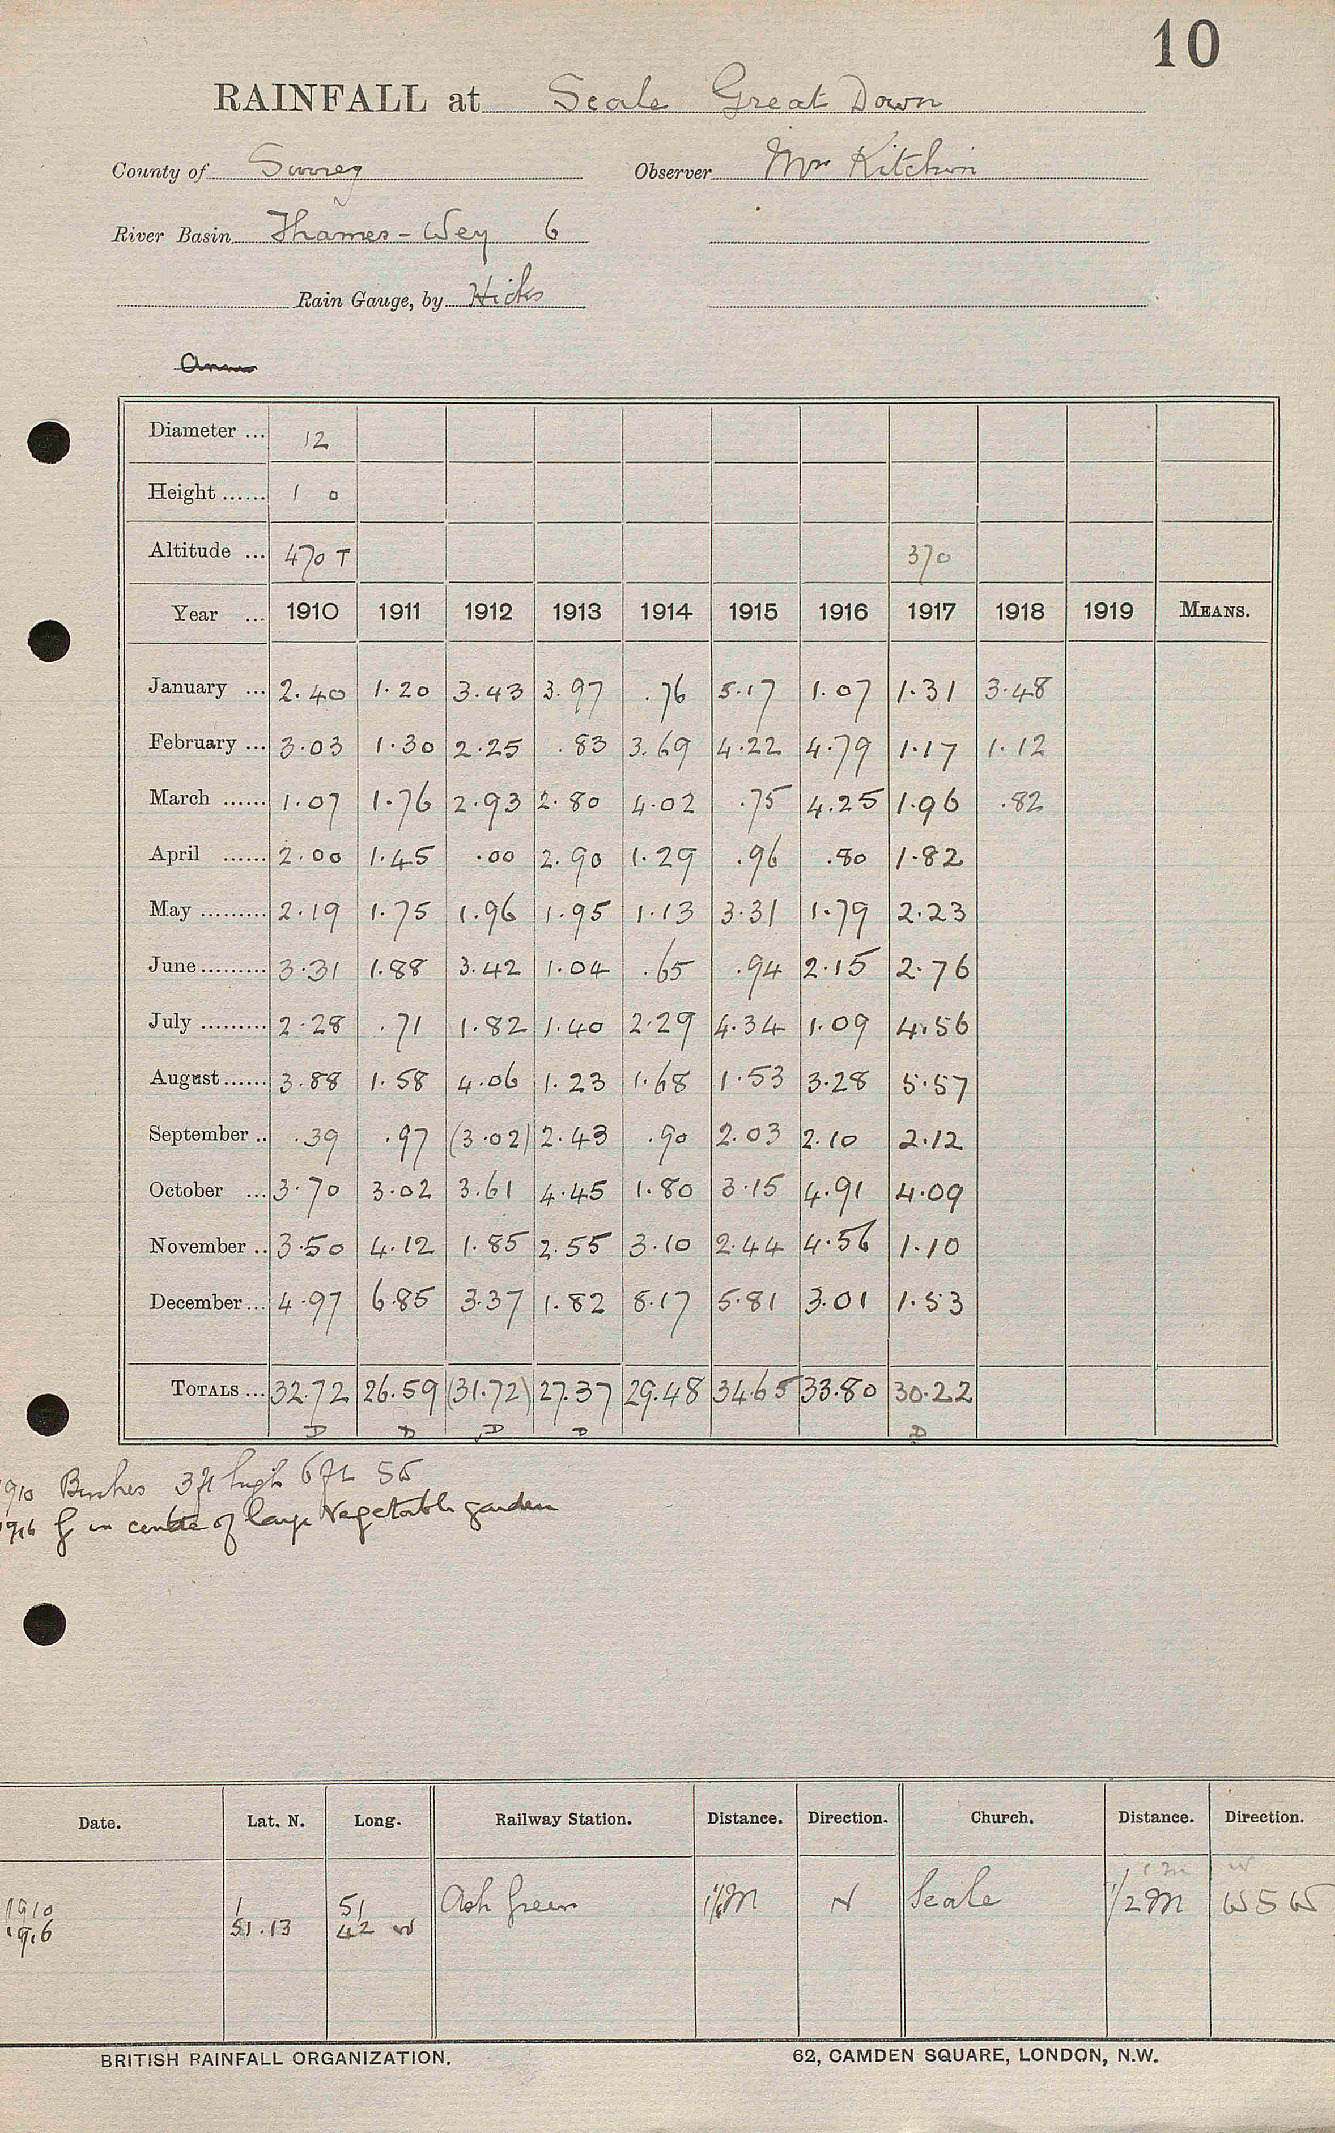 10
RAINFALL at Seale Great Down
County of Surrey Observer Mr Kitchin
River Basin Thames-Wey 6
Rain Gauge, by Hicks
Diameter ... 12
Height ...... 1 0
Altitude ... 470 T 370
Year ... 1910 1911 1912 1913 1914 1915 1916 1917 1918 1919 MEANS.
January ... 2.40 1.20 3.43 3.97 .76 5.17 1.07 1.31 3.48
February ... 3.03 1.30 2.25 .83 3.69 4.22 4.79 1.17 1.12
March ...... 1.07 1.76 2.93 2.80 4.02 .75 4.25 1.96 .82
April ...... 2.00 1.45 .00 2.90 1.29 .96 .80 1.82
May ......... 2.19 1.75 1.96 1.95 1.13 3.31 1.79 2.23
June ......... 3.31 1.88 3.42 1.04 .65 .94 2.15 2.76
July ......... 2.28 .71 1.82 1.40 2.29 4.34 1.09 4.56
August ...... 3.88 1.58 4.06 1.23 1.68 1.53 3.28 5.57
September .. .39 .97 (3.02) 2.43 .90 2.03 2.10 2.12
October ... 3.70 3.02 3.61 4.45 1.80 3.15 4.91 4.09
November .. 3.50 4.12 1.85 2.55 3.10 2.44 4.56 1.10
December ... 4.97 6.85 3.37 1.82 8.17 5.81 3.01 1.53
TOTALS ... 32.72 26.59 (31.72) 27.37 29.48 34.65 33.80 30.22
D D D D D
1910 Bushes 3ft high 6ft SW
1916 in centre of large Vegetable garden
Date. Lat. N. Long. Railway Station. Distance. Direction. Church. Distance. Direction.
1 m W
1910 1 51 Ash Green 1½ M N Seale 1/2 M WSW
1916 51.13 42 W
BRITISH RAINFALL ORGANIZATION. 62, CAMDEN SQUARE, LONDON, N.W.